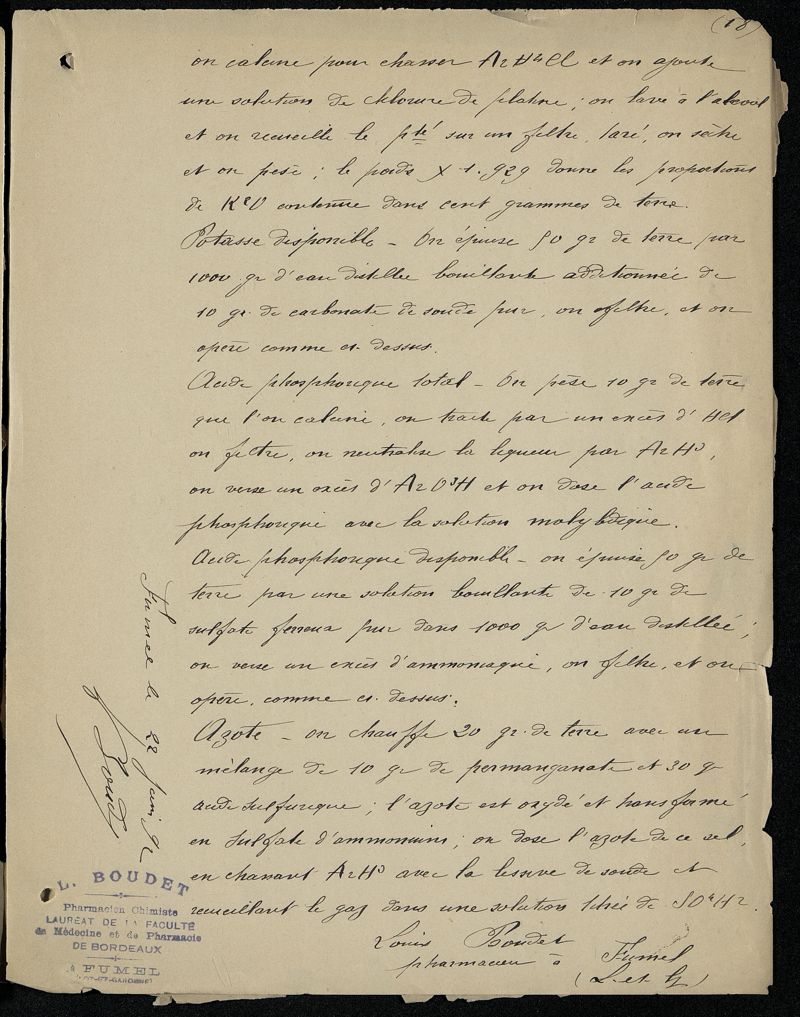 (18)
on calcine pour chasser AzH⁴Cl et on ajoute
une solution de chlorure de platine ; on lave à l'alcool
et on recueille le pté sur un filtre, taré, on sèche
et on pèse ; le poids X 1.929 donne les proportions
de K²O contenue dans cent grammes de terre.
Potasse disponible – On épuise 50 gr de terre par
1000 gr d'eau distillée bouillante additionnée de
10 gr. de carbonate de soude pur, on filtre, et on
opère comme ci-dessus.
Acide phosphorique total – On pèse 10 gr de terre
que l'on calcine, on traite par un excès d'HCl
on filtre, on neutralise la liqueur par AzH³,
on verse un excès d'AzO³H et on dose l'acide
phosphorique avec la solution molybdique.
Acide phosphorique disponible – on épuise 50 gr de
terre par une solution bouillante de 10 gr de
sulfate ferreux pur dans 1000 gr d'eau distillée ;
on verse un excès d'ammoniaque, on filtre, et on
opère, comme ci-dessus.
Azote – on chauffe 20 gr. de terre avec un
mélange de 10 gr de permanganate et 30 gr
acide sulfurique ; l'azote est oxydé et transformé
en sulfate d'ammonium ; on dose l'azote de ce sel,
en chassant AzH³ avec la lessive de soude et
recueillant le gaz dans une solution titrée de SO⁴H².
Louis Boudet
pharmacien à Fumel
(L. et G)
Fumel le 22 Juin 92
L. Boudet
L. BOUDET
Pharmacien Chimiste
LAURÉAT DE LA FACULTÉ
de Médecine et de Pharmacie
DE BORDEAUX
A FUMEL
(LOT-ET-GARONNE)